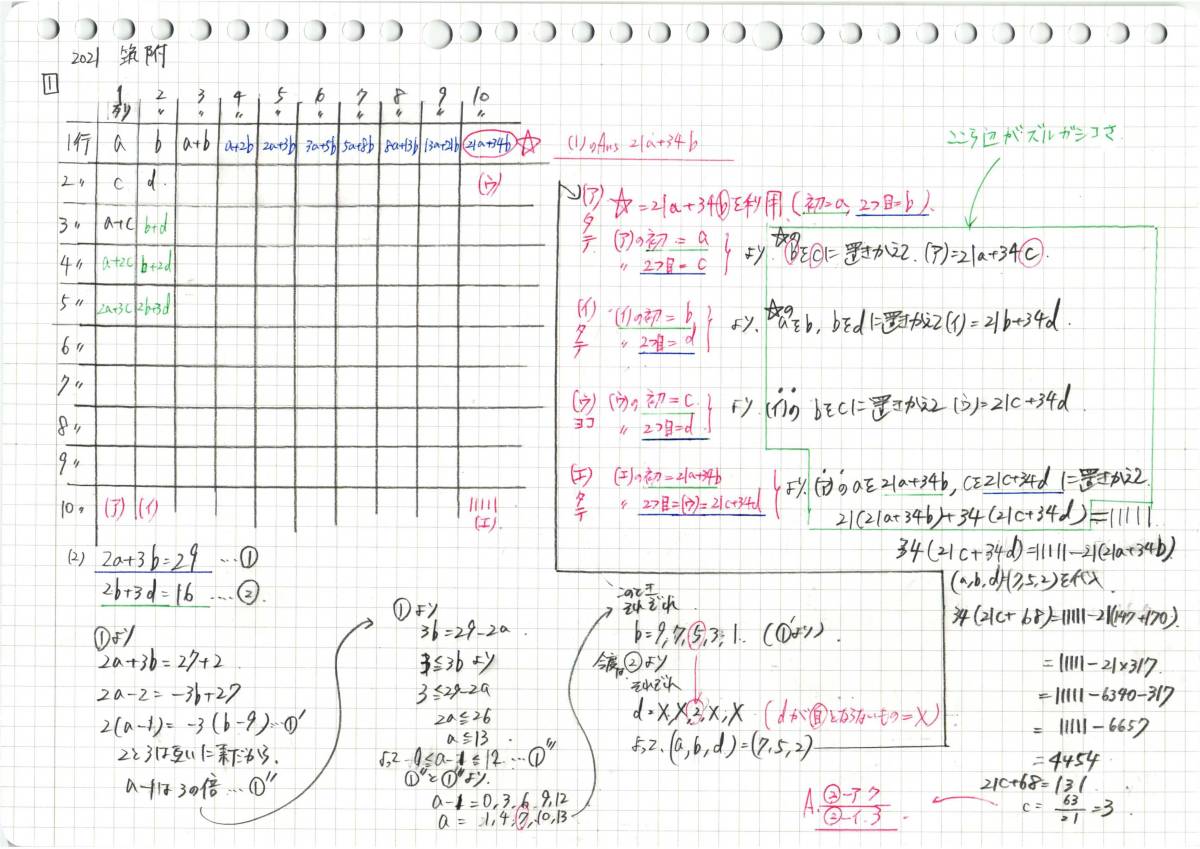 2021 筑附
1
1 2 3 4 5 6 7 8 9 10
列 〃 〃 〃 〃 〃 〃 〃 〃 〃
1行 a b a+b a+2b 2a+3b 3a+5b 5a+8b 8a+13b 13a+21b 21a+34b ☆
2〃 c d (ウ)
3〃 a+c b+d
4〃 a+2c b+2d
5〃 2a+3c 2b+3d
6〃
7〃
8〃
9〃
10〃 (ア) (イ) 11111
(エ)
(1)のAns 21a+34b
ここら辺がズルガシコさ
(ア) ☆=21a+34bを利用(初=a, 2つ目=b).
タテ (ア)の初=a
〃 2つ目=c
より ☆の bをcに置きかえて (ア)=21a+34c.
(イ) (イ)の初=b
タテ 〃 2つ目=d
より. ☆の aをb, bをdに置きかえて(イ)=21b+34d.
(ウ) (ウ)の初=c
ヨコ 〃 2つ目=d
より (イ)の bをcに置きかえて (ウ)=21c+34d
(エ) (エ)の初=21a+34b
タテ 〃 2つ目=(ウ)=21c+34d
より (ア)のaを21a+34b, cを21c+34dに置きかえて
21(21a+34b)+34(21c+34d)=11111
34(21c+34d)=11111-21(21a+34b)
(a,b,d)=(7,5,2)を代入
34(21c+68)=11111-21(147+170)
=11111-21×317
=11111-6340-317
=11111-6657
=4454
21c+68=131
c=63/21=3
(2) 2a+3b=29 …①
2b+3d=16 …②
①より
2a+3b=27+2
2a-2=-3b+27
2(a-1)=-3(b-9)…①'
2と3は互いに素だから,
a-1は3の倍…①''
①より
3b=29-2a
3≦3bより
3≦29-2a
2a≦26
a≦13.
よって-0≦a-1≦12…①''
①''と①''より.
a-1=0,3,6,9,12
a=1,4,7,10,13
このとき
それぞれ
b=9,7,5,3,1. (①'より)
今度は②より
それぞれ
d=X,X,2,X,X (dが自とならないもの=X)
よって, (a,b,d)=(7,5,2)
A. ②-アク
②-イ.3